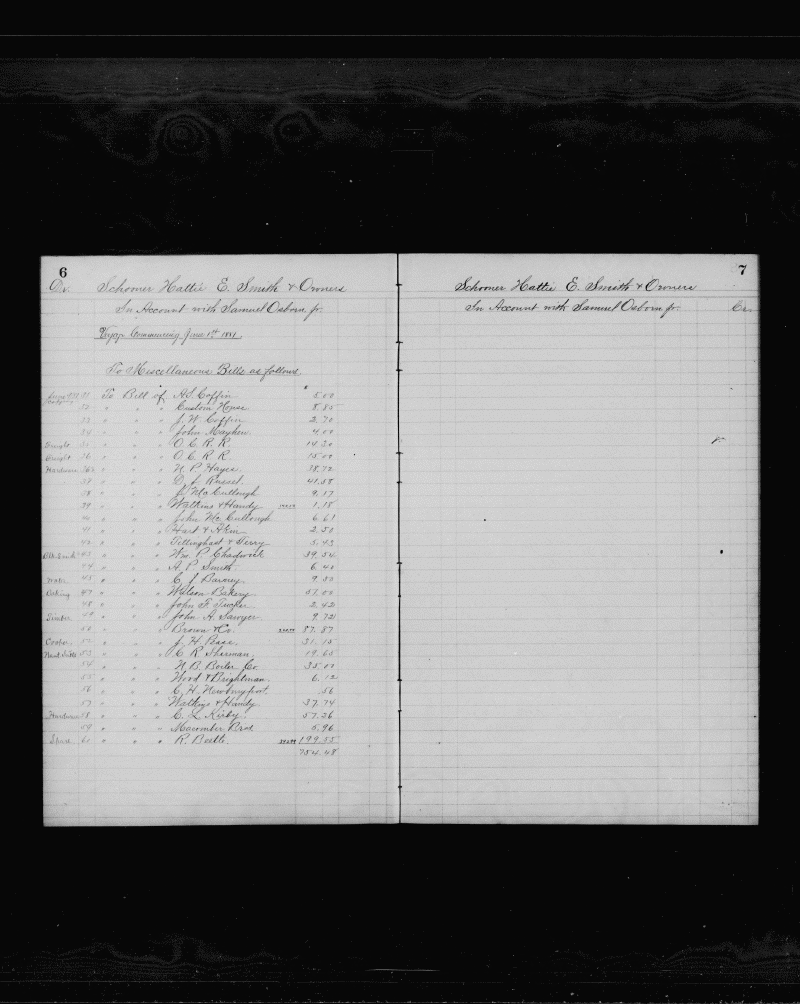 6
Dr. Schooner Hattie E. Smith & Owners
In Account with Samuel Osborn jr.
Voyage Commencing June 1st 1881.
To Miscellaneous Bills as follows.
31 To Bill of A.S. Coffin 5.00
32 " " " Custom House 8.85
33 " " " J. W. Coffin 2.70
34 " " " John Mayhew 4.00
Freight 35 " " " O. C. R. R. 14.30
Freight 36 " " " O. C. R. R. 15.00
Hardware 36½ " " " N. P. Hayes 38.72
37 " " " D. J. Russel 41.58
38 " " " J. McCullough 9.17
39 " " " Watkins & Handy 1.18
40 " " " John McCullough 6.61
41 " " " Hart & Akin 2.50
42 " " " Tillinghast & Terry 5.43
43 " " " Wm P. Chadwick 39.54
44 " " " A. P. Smith 6.40
Water 45 " " " C. J. Barney 9.50
Baking 47 " " " Watson Bakery 57.00
48 " " " John F. Tucker 2.42
49 " " " John A. Sawyer 9.72
50 " " " Brown & Co. 87.87
Cooper 52 " " " J. H. Base 31.15
53 " " " C. R. Sherman 19.65
54 " " " N. B. Boiler Co. 35.00
55 " " " Wood & Brightman 6.12
56 " " " C. H. Newburyport .56
57 " " " Watkins & Handy 37.74
Hardware 58 " " " C. L. Kirby 57.26
59 " " " Macomber Bros 5.96
60 " " " R. Beetle. 199.55
754.48
7
Schooner Hattie E. Smith & Owners
In Account with Samuel Osborn jr. Cr.